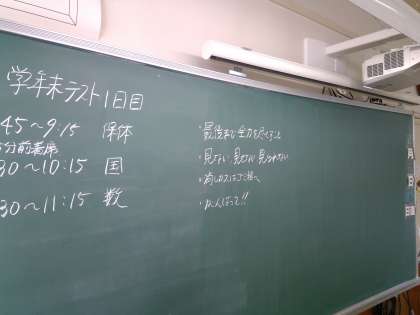 学年末テスト1日目
45〜9:15 保体
5分前着席
30〜10:15 国
30〜11:15 数
・最後まで全力を尽くすこと
・見ない 見せない 見られない
・消しカスはゴミ箱へ
・がんばって!!
月
日